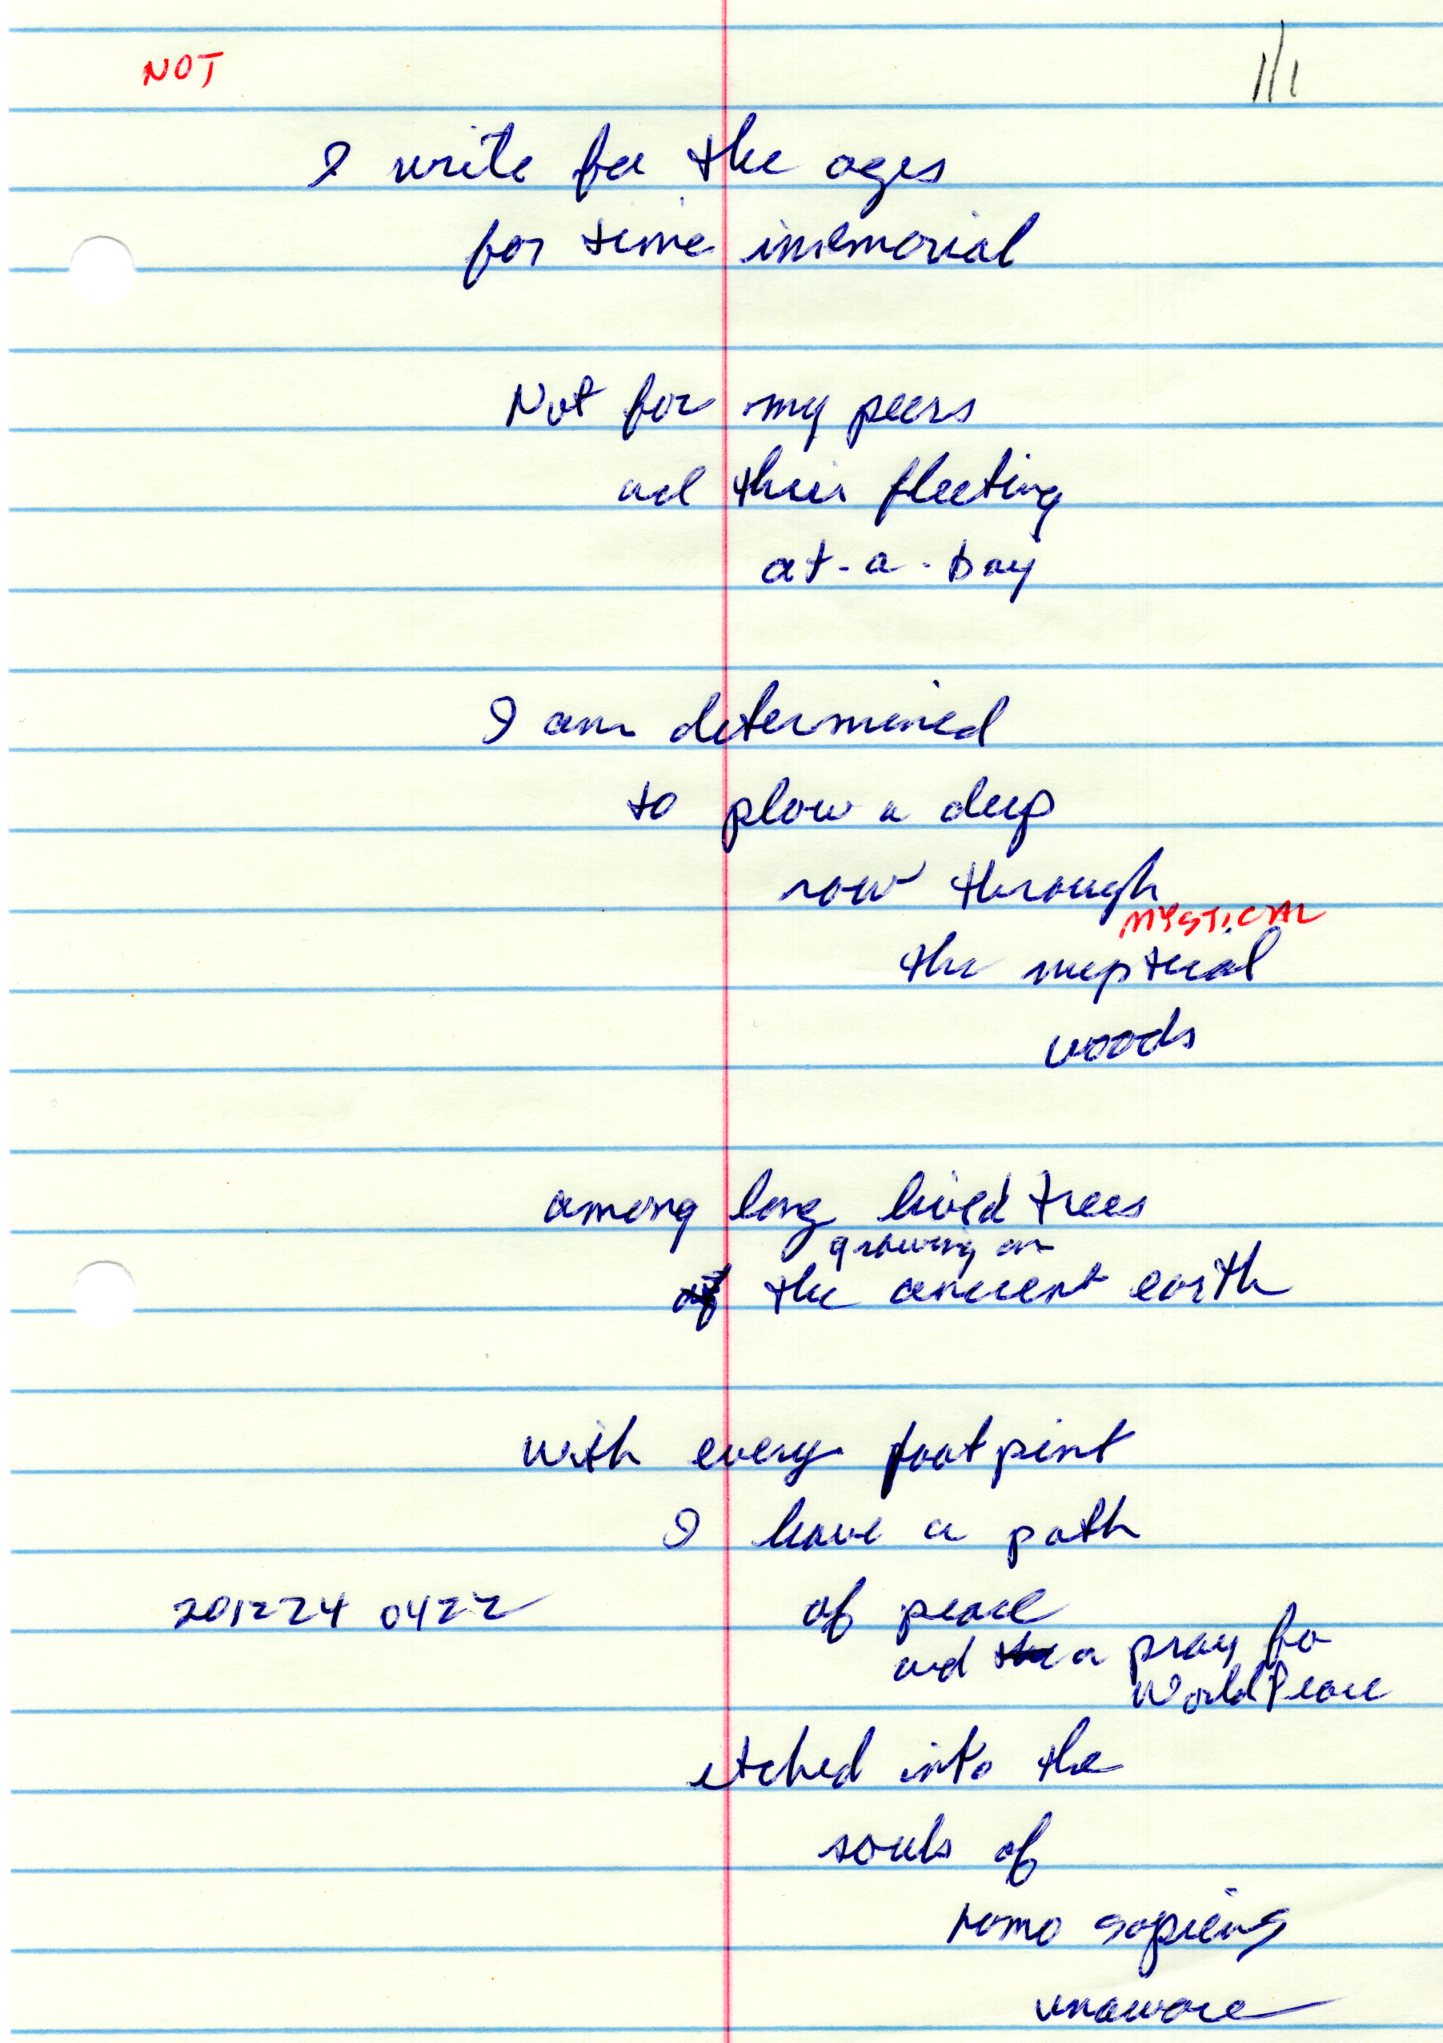 NOT
1/1
I write for the ages
for time immemorial
Not for my peers
and their fleeting
at-a-bay
I am determined
to plow a deep
row through
MYSTICAL
the
woods
among long lived trees
growing on
the ancient earth
with every footprint
I leave a path
201224 0422 of peace
and a pray for
World Peace
etched into the
souls of
homo sapiens
unaware